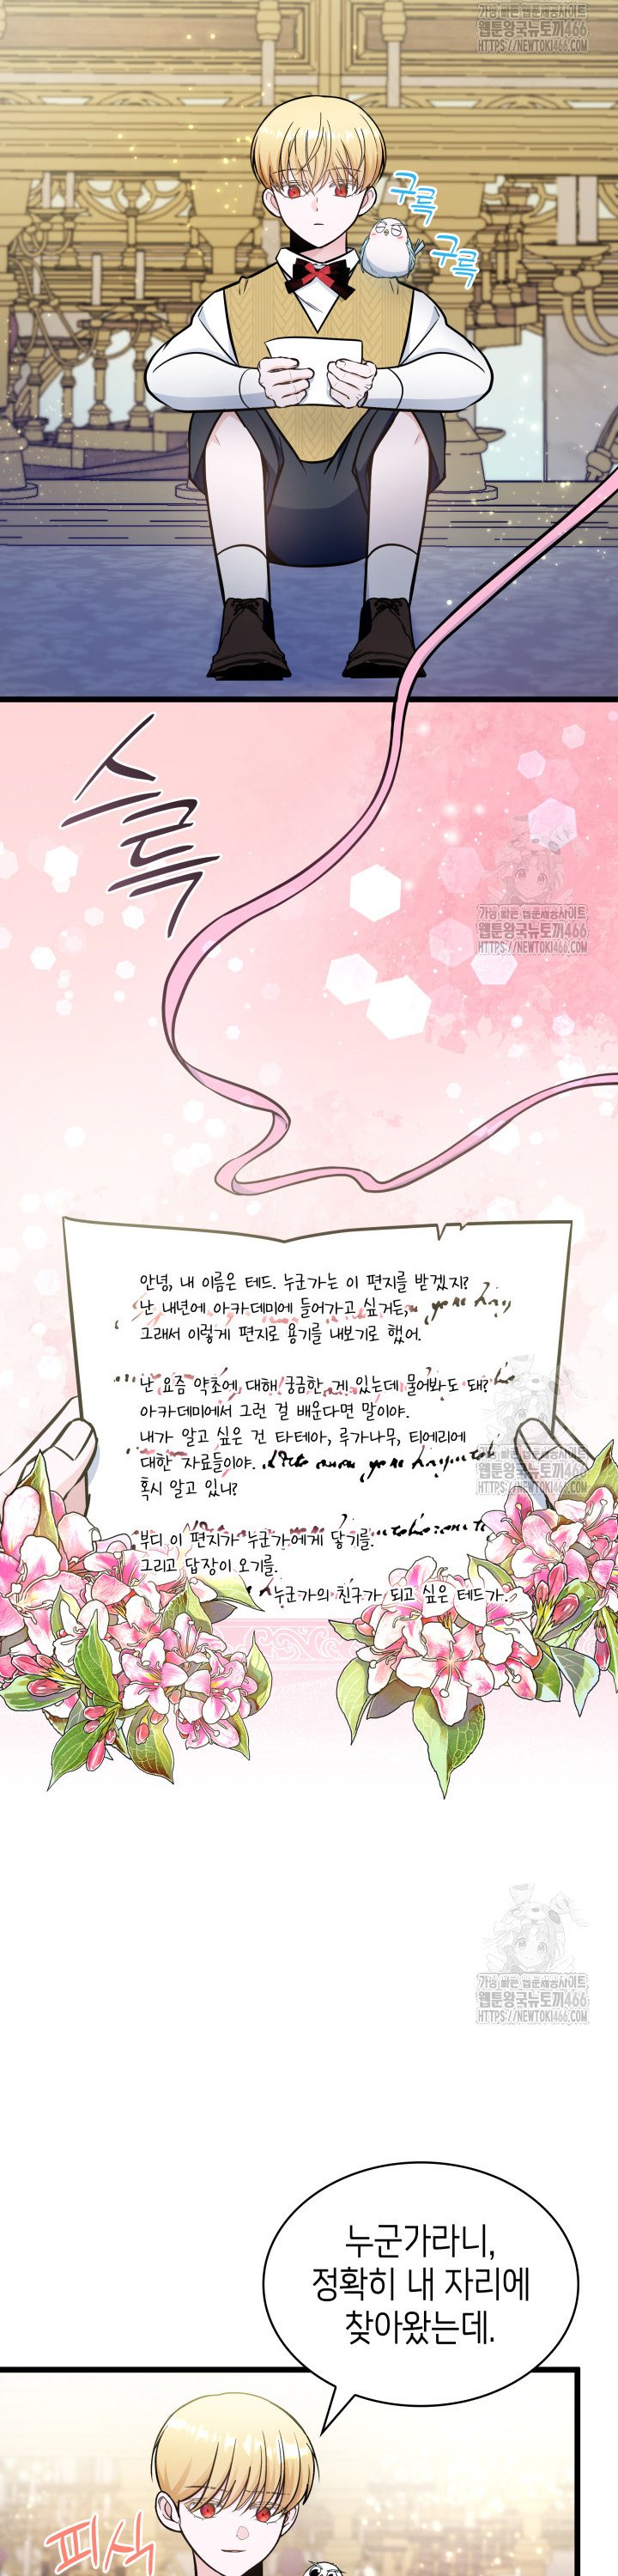 가장 빠른 웹툰제공사이트
웹툰왕국뉴토끼466
HTTPS://NEWTOKI466.COM
구륵
구륵
스륵
가장 빠른 웹툰제공사이트
웹툰왕국뉴토끼466
HTTPS://NEWTOKI466.COM
안녕, 내 이름은 테드. 누군가는 이 편지를 받겠지?
난 내년에 아카데미에 들어가고 싶거든,
그래서 이렇게 편지로 용기를 내보기로 했어.
난 요즘 약초에 대해 궁금한 게 있는데 물어봐도 돼?
아카데미에서 그런 걸 배운다면 말이야.
내가 알고 싶은 건 타테아, 루가나무, 티에리에
대한 자료들이야.
혹시 알고 있니?
가장 빠른 웹툰제공사이트
웹툰왕국뉴토끼466
HTTPS://NEWTOKI466.COM
부디 이 편지가 누군가에게 닿기를.
그리고 답장이 오기를.
누군가의 친구가 되고 싶은 테드가.
가장 빠른 웹툰제공사이트
웹툰왕국뉴토끼466
HTTPS://NEWTOKI466.COM
누군가라니,
정확히 내 자리에
찾아왔는데.
피식